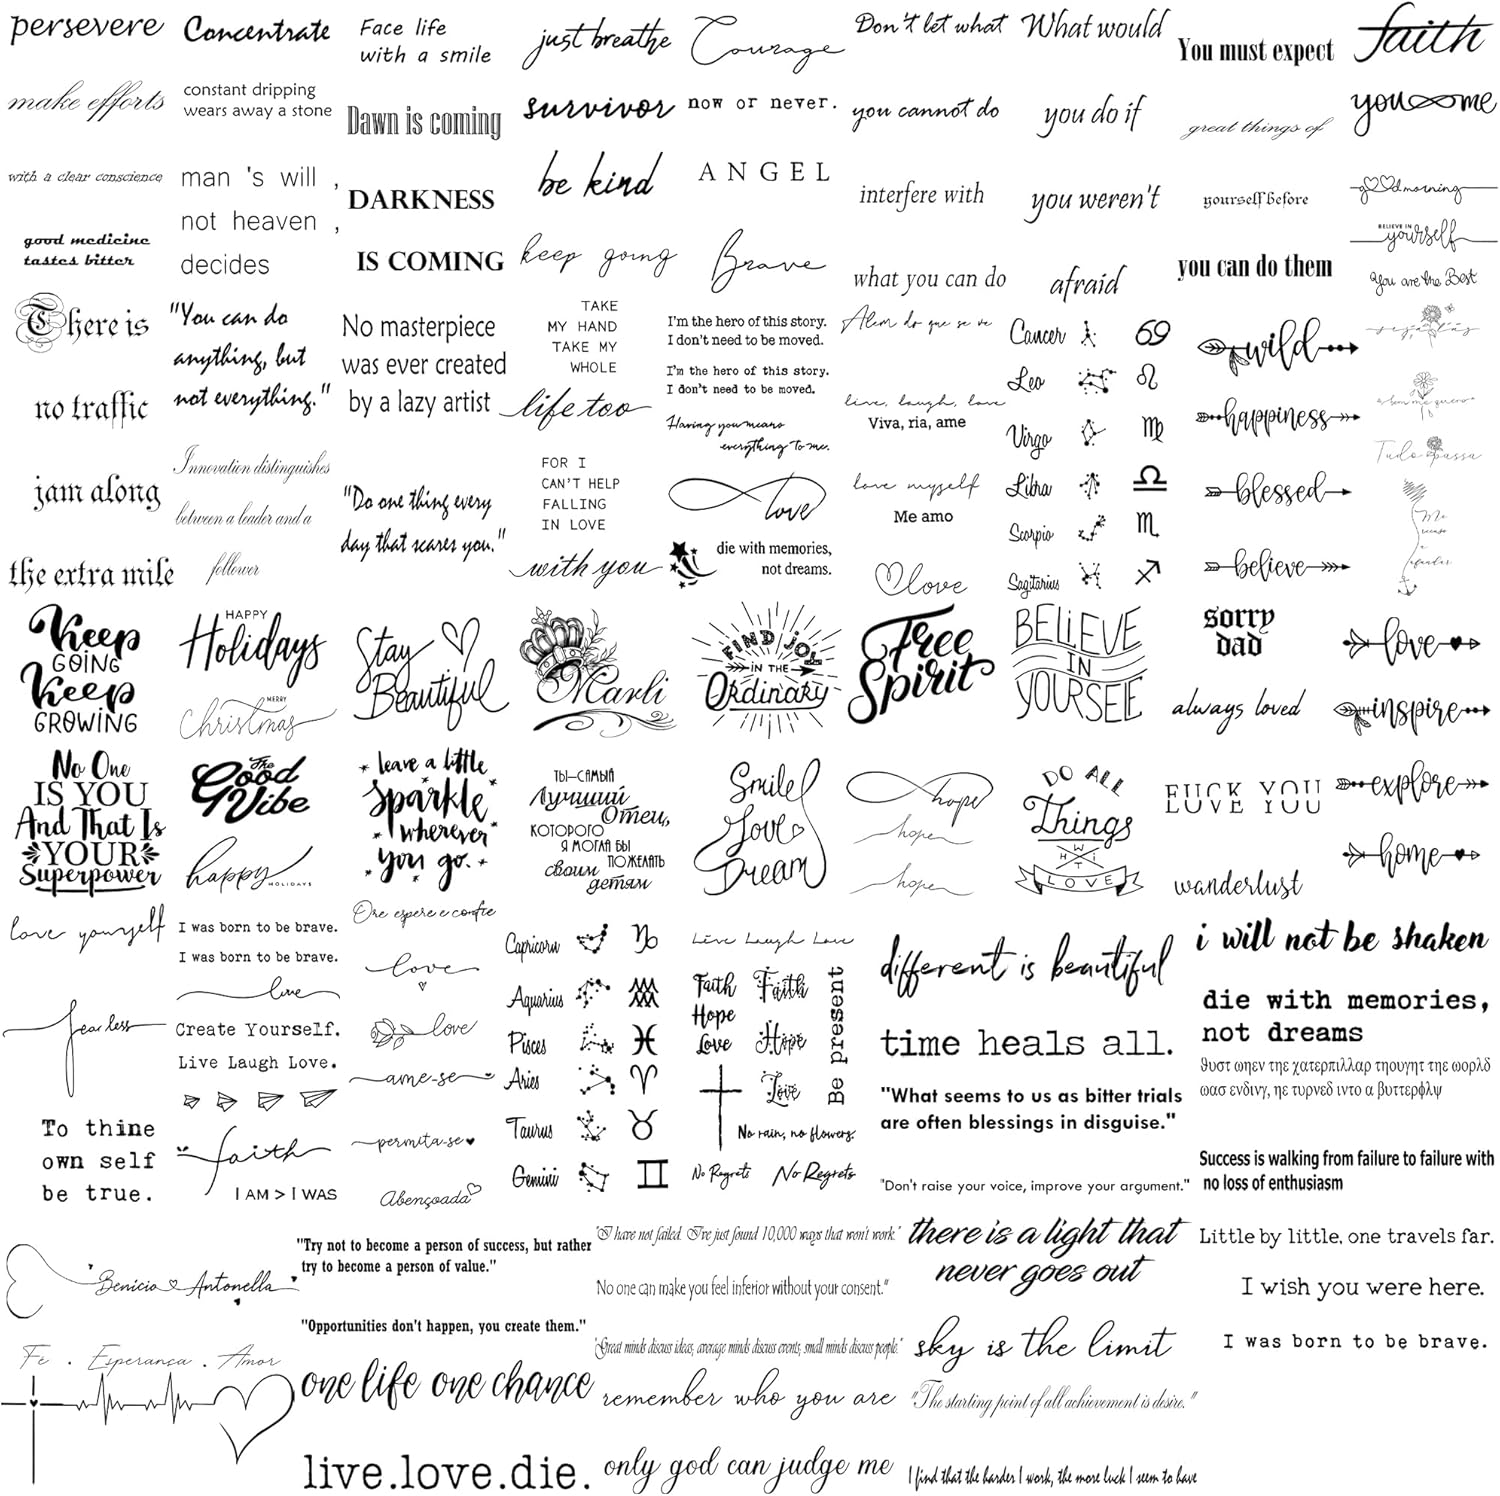 persevere
make efforts
with a clear conscience
good medicine
tastes bitter
There is
no traffic
jam along
the extra mile
Concentrate
constant dripping
wears away a stone
man 's will ,
not heaven ,
decides
"You can do
anything, but
not everything."
Innovation distinguishes
between a leader and a
follower
Face life
with a smile
Dawn is coming
DARKNESS
IS COMING
No masterpiece
was ever created
by a lazy artist
"Do one thing every
day that scares you."
just breathe
survivor
be kind
keep going
TAKE
MY HAND
TAKE MY
WHOLE
life too
FOR I
CAN'T HELP
FALLING
IN LOVE
with you
Courage
now or never.
ANGEL
Brave
I'm the hero of this story.
I don't need to be moved.
I'm the hero of this story.
I don't need to be moved.
Having you means
everything to me.
love
die with memories,
not dreams.
Don't let what
you cannot do
interfere with
what you can do
Alem do que se ve
live, laugh, love
Viva, ria, ame
love myself
Me amo
love
What would
you do if
you weren't
afraid
Cancer
Leo
Virgo
Libra
Scorpio
Sagitarius
You must expect
great things of
yourself before
you can do them
wild
happiness
blessed
believe
faith
you me
good morning
BELIEVE IN
yourself
You are the Best
Tudo passa
Keep
GOING
Keep
GROWING
HAPPY
Holidays
MERRY
Christmas
Stay
Beautiful
Marli
FIND JOY
IN THE
Ordinary
Free
Spirit
BELIEVE
IN
YOURSELF
sorry
dad
always loved
love
inspire
No One
IS YOU
And That Is
YOUR
Superpower
The
Good
Vibe
happy
HOLIDAYS
leave a little
sparkle
wherever
you go.
ТЫ—САМЫЙ
Лучший
Отец,
КОТОРОГО
Я МОГЛА БЫ
ПОЖЕЛАТЬ
своим
детям
Smile
Love
Dream
hope
hope
hope
DO ALL
Things
WITH
LOVE
wanderlust
explore
home
love yourself
fearless
To thine
own self
be true.
I was born to be brave.
I was born to be brave.
love
Create Yourself.
Live Laugh Love.
faith
I AM > I WAS
Ore espere e confie
love
love
ame-se
permita-se
Abençoada
Capricorn
Aquarius
Pisces
Aries
Taurus
Gemini
Live Laugh Love
Faith
Hope
Love
Faith
Hope
Love
Be present
No rain, no flowers.
No Regrets
No Regrets
different is beautiful
time heals all.
"What seems to us as bitter trials
are often blessings in disguise."
"Don't raise your voice, improve your argument."
i will not be shaken
die with memories,
not dreams
ϑυστ ωηεν τηε χατερπιλλαρ τηουγητ τηε ωορλδ
ωασ ενδινγ, ηε τυρνεδ ιντο α βυττερφλψ
Success is walking from failure to failure with
no loss of enthusiasm
Benício Antonella
Fe . Esperança . Amor
"Try not to become a person of success, but rather
try to become a person of value."
"Opportunities don't happen, you create them."
one life one chance
live.love.die.
"I have not failed. I've just found 10,000 ways that won't work."
No one can make you feel inferior without your consent."
"Great minds discuss ideas; average minds discuss events; small minds discuss people."
remember who you are
only god can judge me
there is a light that
never goes out
sky is the limit
"The starting point of all achievement is desire."
I find that the harder I work, the more luck I seem to have
Little by little, one travels far.
I wish you were here.
I was born to be brave.